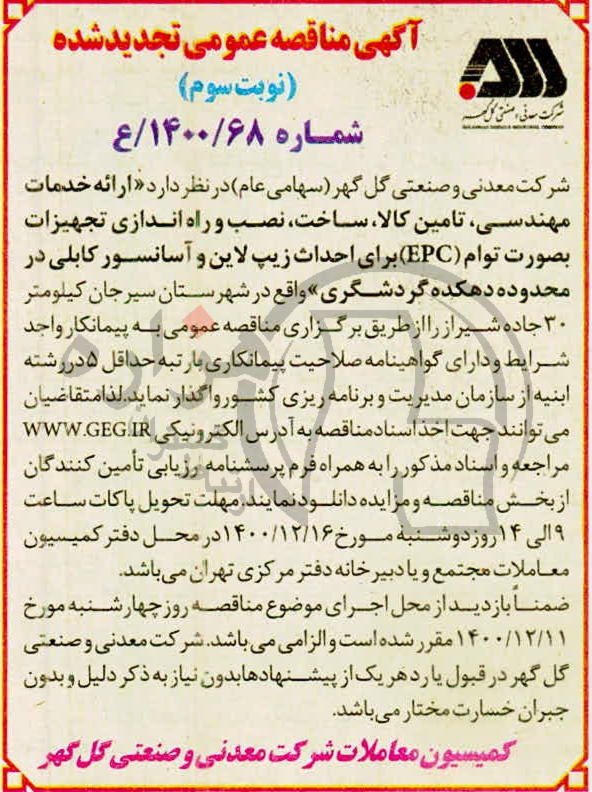 آگهی مناقصه عمومی تجدیدشده
(نوبت سوم)
شماره ۱۴۰۰/۶۸/ع
شرکت معدنی و صنعتی گل گهر
GOLGOHAR MINING & INDUSTRIAL COMPANY
شرکت معدنی و صنعتی گل گهر (سهامی عام) در نظر دارد «ارائه خدمات
مهندسی، تامین کالا، ساخت، نصب و راه اندازی تجهیزات
بصورت توام (EPC) برای احداث زیپ لاین و آسانسور کابلی در
محدوده دهکده گردشگری» واقع در شهرستان سیرجان کیلومتر
۳۰ جاده شیراز را از طریق برگزاری مناقصه عمومی به پیمانکار واجد
شرایط و دارای گواهینامه صلاحیت پیمانکاری با رتبه حداقل ۵ در رشته
ابنیه از سازمان مدیریت و برنامه ریزی کشور واگذار نماید. لذا متقاضیان
می توانند جهت اخذ اسناد مناقصه به آدرس الکترونیکی WWW.GEG.IR
مراجعه و اسناد مذکور را به همراه فرم پرسشنامه ارزیابی تأمین کنندگان
از بخش مناقصه و مزایده دانلود نمایند. مهلت تحویل پاکات ساعت
۹ الی ۱۴ روز دوشنبه مورخ ۱۴۰۰/۱۲/۱۶ در محل دفتر کمیسیون
معاملات مجتمع و یا دبیرخانه دفتر مرکزی تهران می باشد.
ضمناً بازدید از محل اجرای موضوع مناقصه روز چهارشنبه مورخ
۱۴۰۰/۱۲/۱۱ مقرر شده است و الزامی می باشد. شرکت معدنی و صنعتی
گل گهر در قبول یا رد هر یک از پیشنهادها بدون نیاز به ذکر دلیل و بدون
جبران خسارت مختار می باشد.
کمیسیون معاملات شرکت معدنی و صنعتی گل گهر